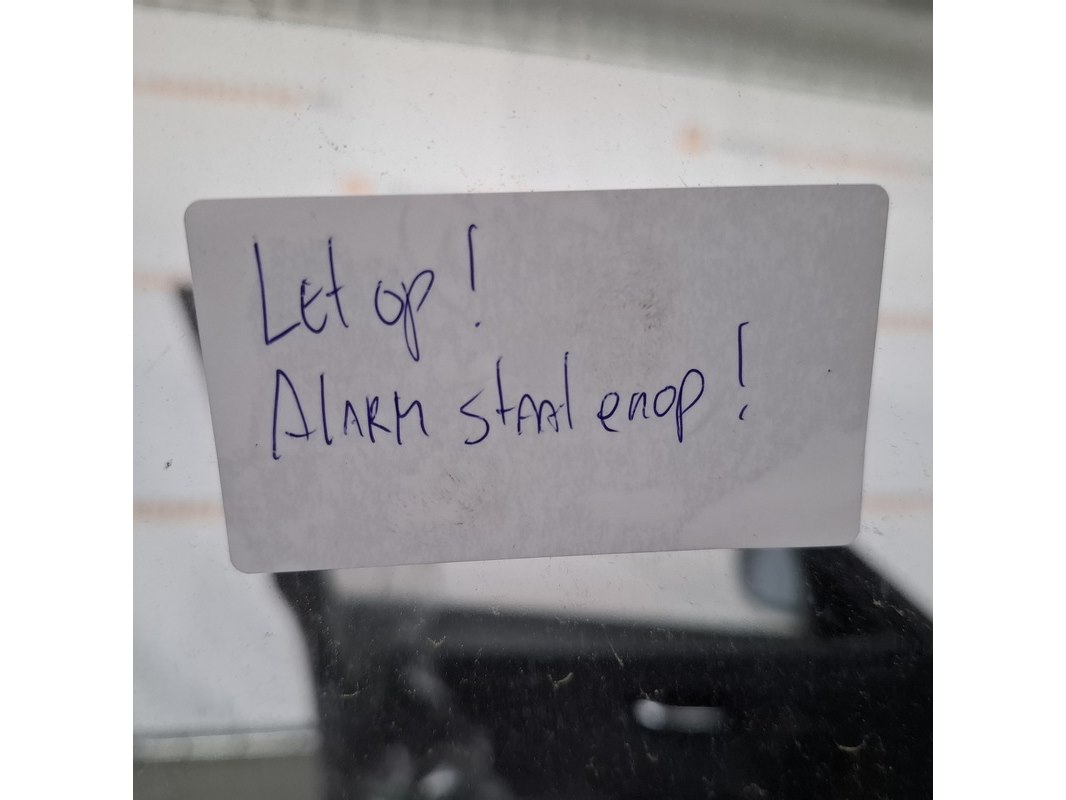 Let op!
Alarm staat erop!